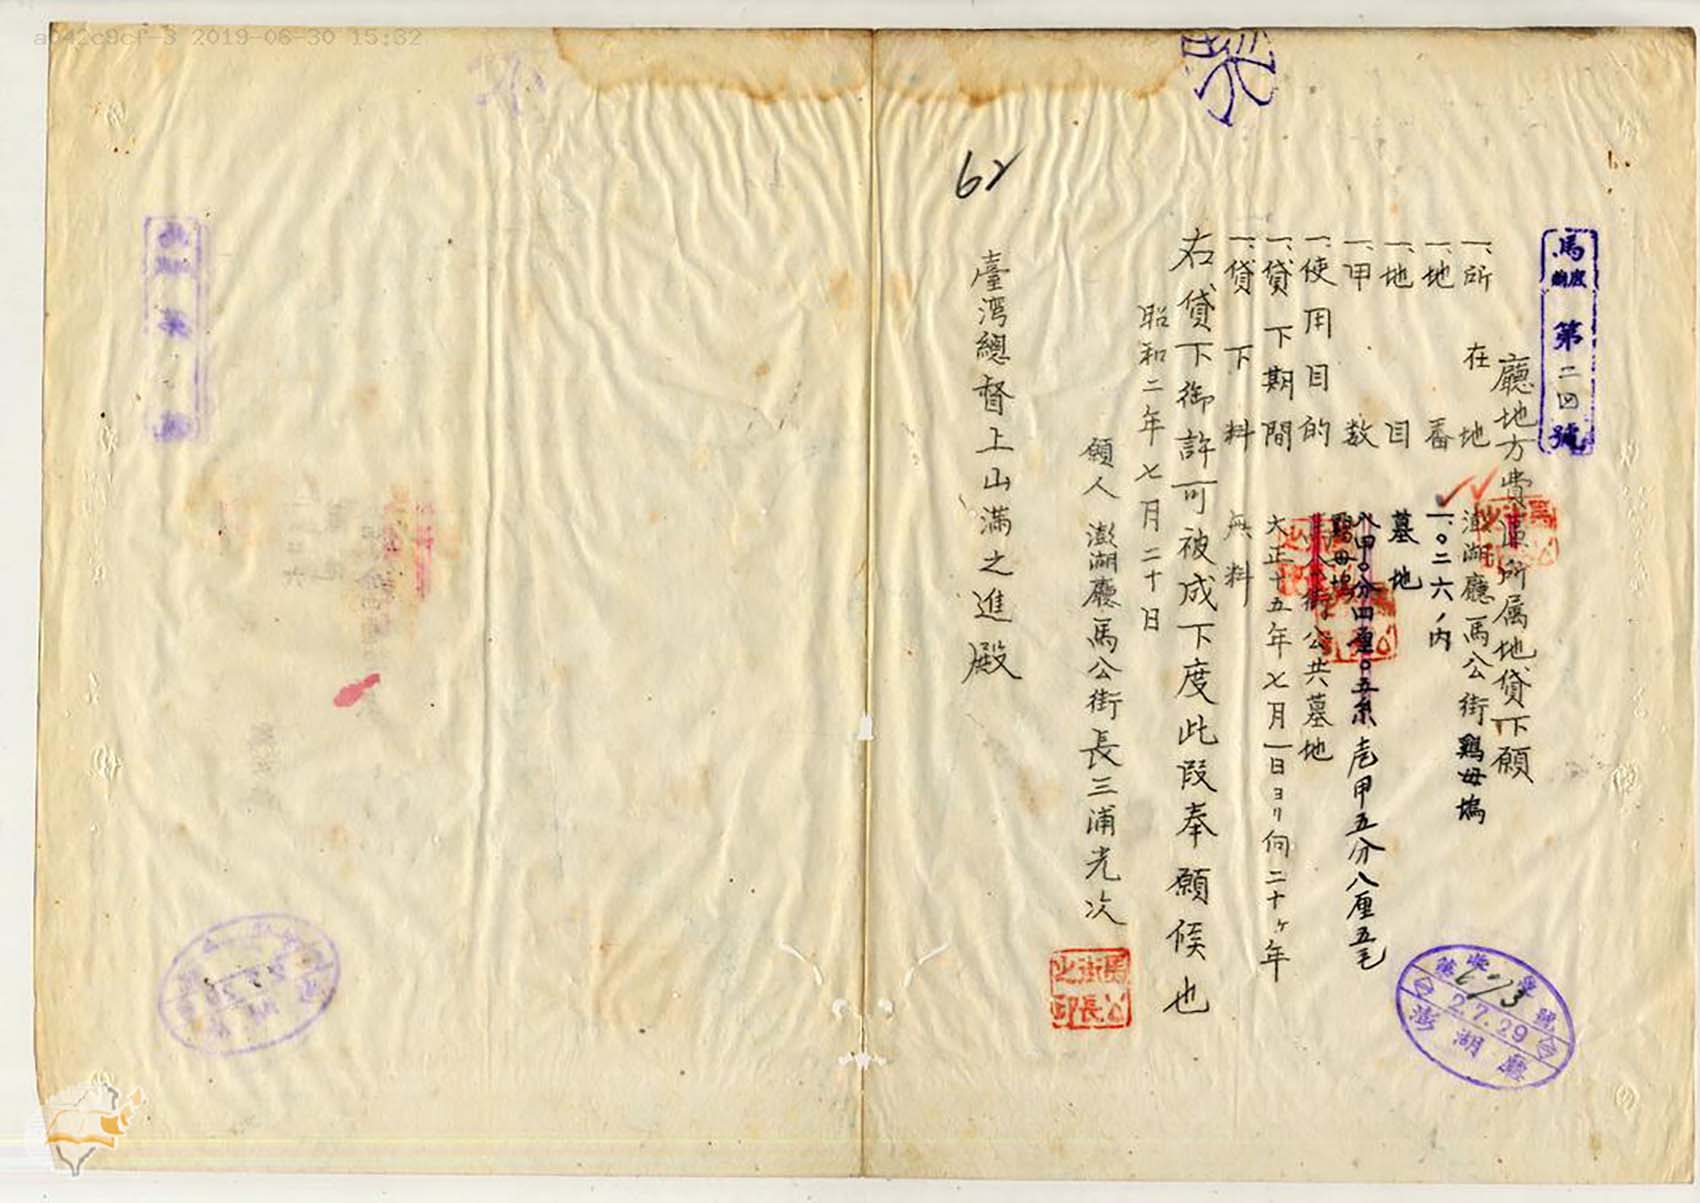 a642c9cf-3 2019-06-30 15:32
62
馬庶第二四號
廳地方費區所属地貸下願
一、所在地 澎湖廳馬公街鷄母塢
一、地番 一〇二六ノ内
一、地目 墓地
一、甲数 八甲〇分四厘〇五糸 壱甲五分八厘五毛
一、使用目的 鷄母塢 街公共墓地
一、貸下期間 大正十五年七月一日ヨリ向二十ヶ年
一、貸下料 無料
右貸下御許可被成下度此段奉願候也
昭和二年七月二十日
願人 澎湖廳馬公街長三浦光次
馬公街長之印
臺湾總督上山満之進殿
2.7.29
澎湖廳